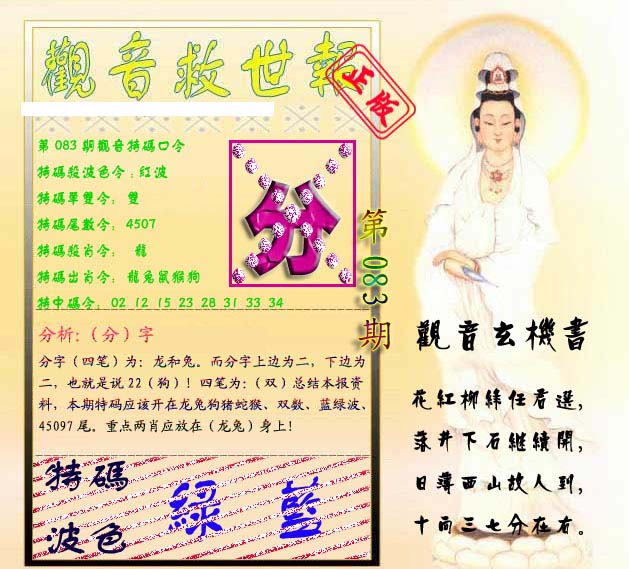 觀音救世報
正版
第 083 期觀音特碼口令
特碼殺波色令:紅波
特碼單雙令: 雙
特碼尾數令: 4507
特碼殺肖令: 龍
特碼出肖令: 龍兔鼠猴狗
特中碼令: 02 12 15 23 28 31 33 34
分
第 083 期
分析:（分）字
分字（四笔）为: 龙和兔。而分字上边为二, 下边为
二, 也就是说 22（狗）! 四笔为:（双）总结本报资
料, 本期特码应该开在龙兔狗猪蛇猴、双数、蓝绿波、
45097 尾。重点两肖应放在（龙兔）身上!
特碼
波色
綠 藍
觀音玄機書
花紅柳綠任君選,
落井下石繼續開,
日薄西山故人到,
十面三七分在右。